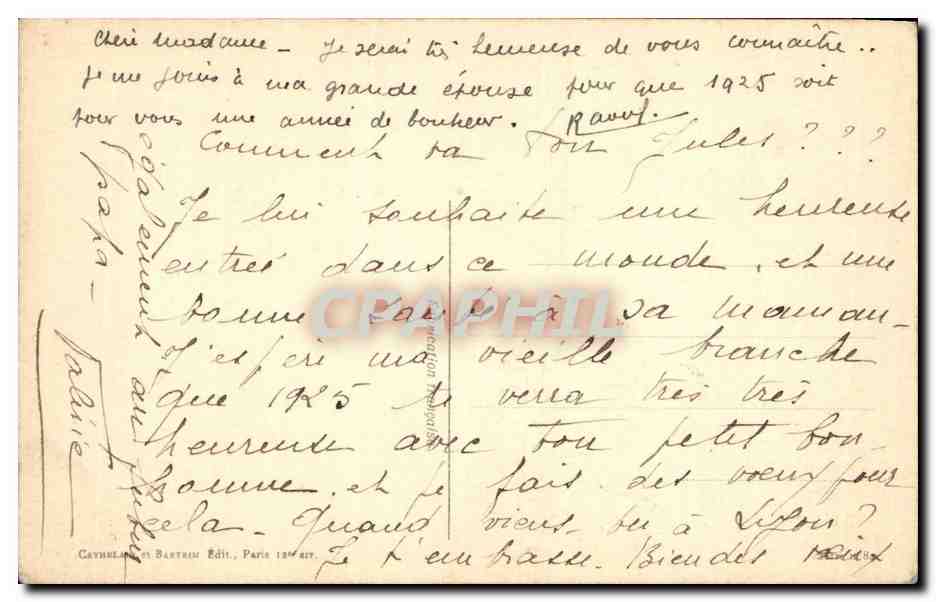 Chère Madame - Je serai très heureuse de vous connaître..
Je me joins à ma grande épouse pour que 1925 soit
pour vous une année de bonheur. Raoul.
Comment va Jules ? ? ?
Je lui souhaite une heureuse
entrés dans ce monde, et une
bonne santé à sa maman -
J'espère ma vieille branche
que 1925 te verra très très
heureuse avec ton petit bon-
homme, et je fais des voeux pour
cela - Quand viens-tu à Lyon ?
Je t'embrasse. Bien des
également au futur
papa -
Valérie
CPAPHIL
Fabrication française
Édit., Paris 12e arr.